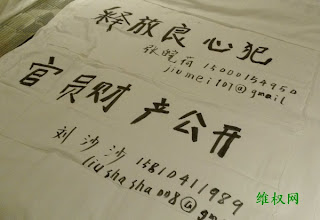 释放良心犯
张皖荷 15000154950
jiumei101@gmail
官员财产公开
刘沙沙 15810411989
liushasha008@gma
维权网